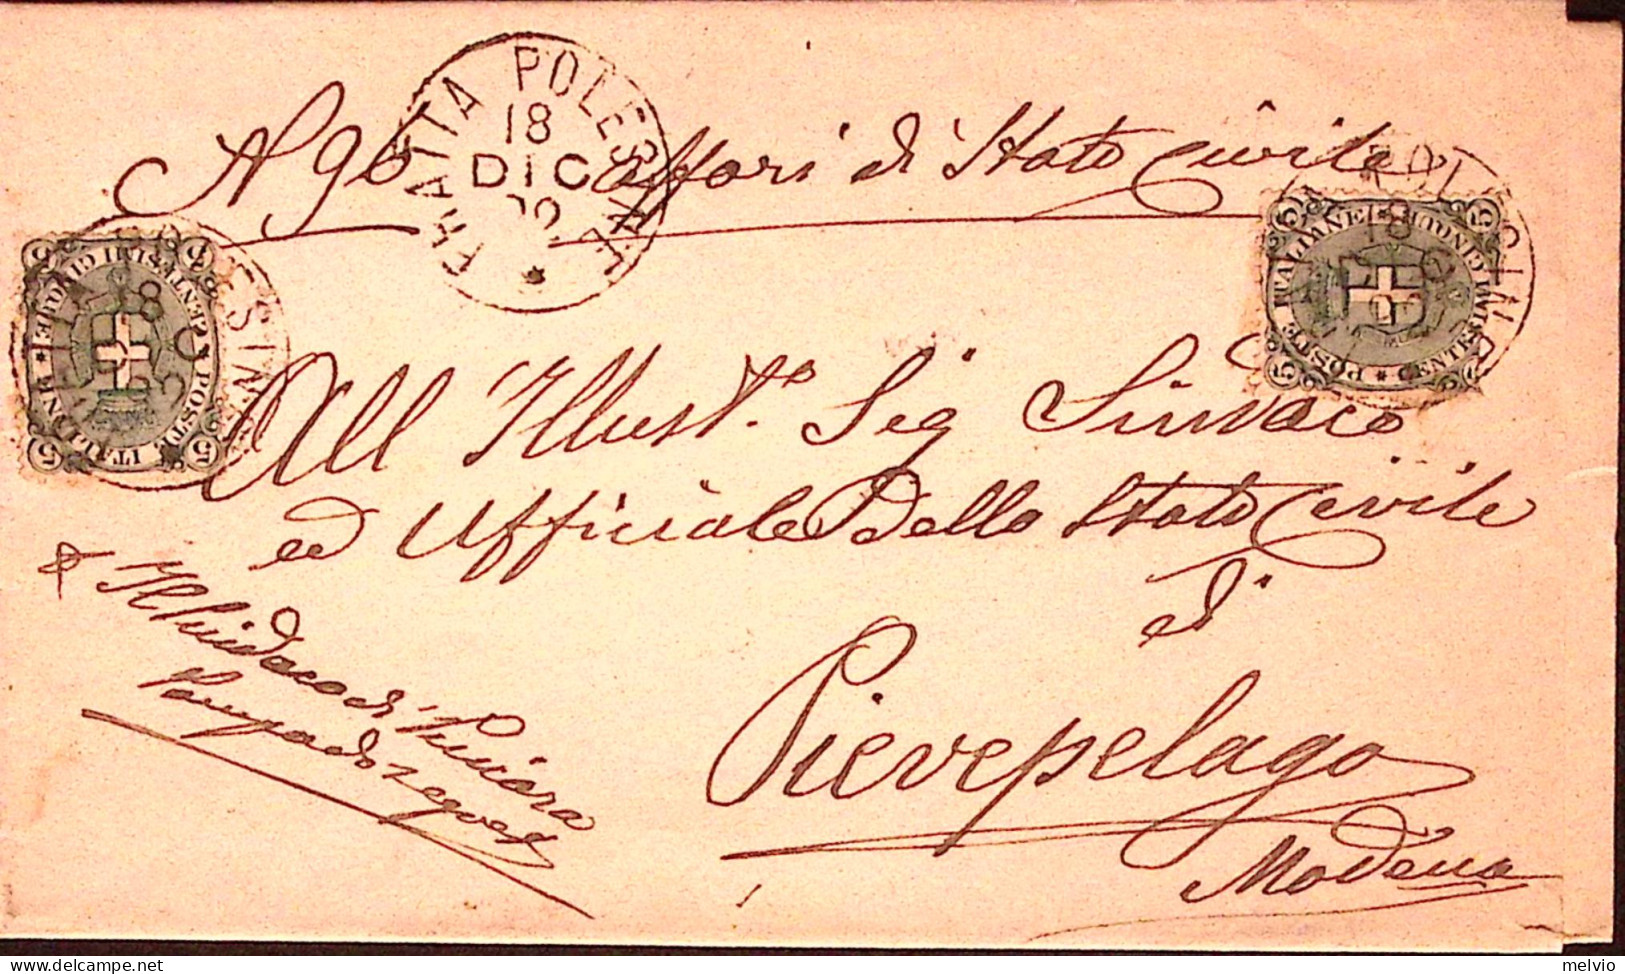 FRATTA POLESINE
18
DIC
N 96 affari di Stato Civile
5 5 5 5
POSTE ITALIANE * CENTESIMI CINQUE *
18
5 5 5
POSTE ITALIANE * CENTESIMI CINQUE *
18
All Illust.º Sig Sindaco
ed Ufficiale Dello Stato Civile
di
Pievepelago
Modena
Il Sindaco di
delcampe.net
melvio